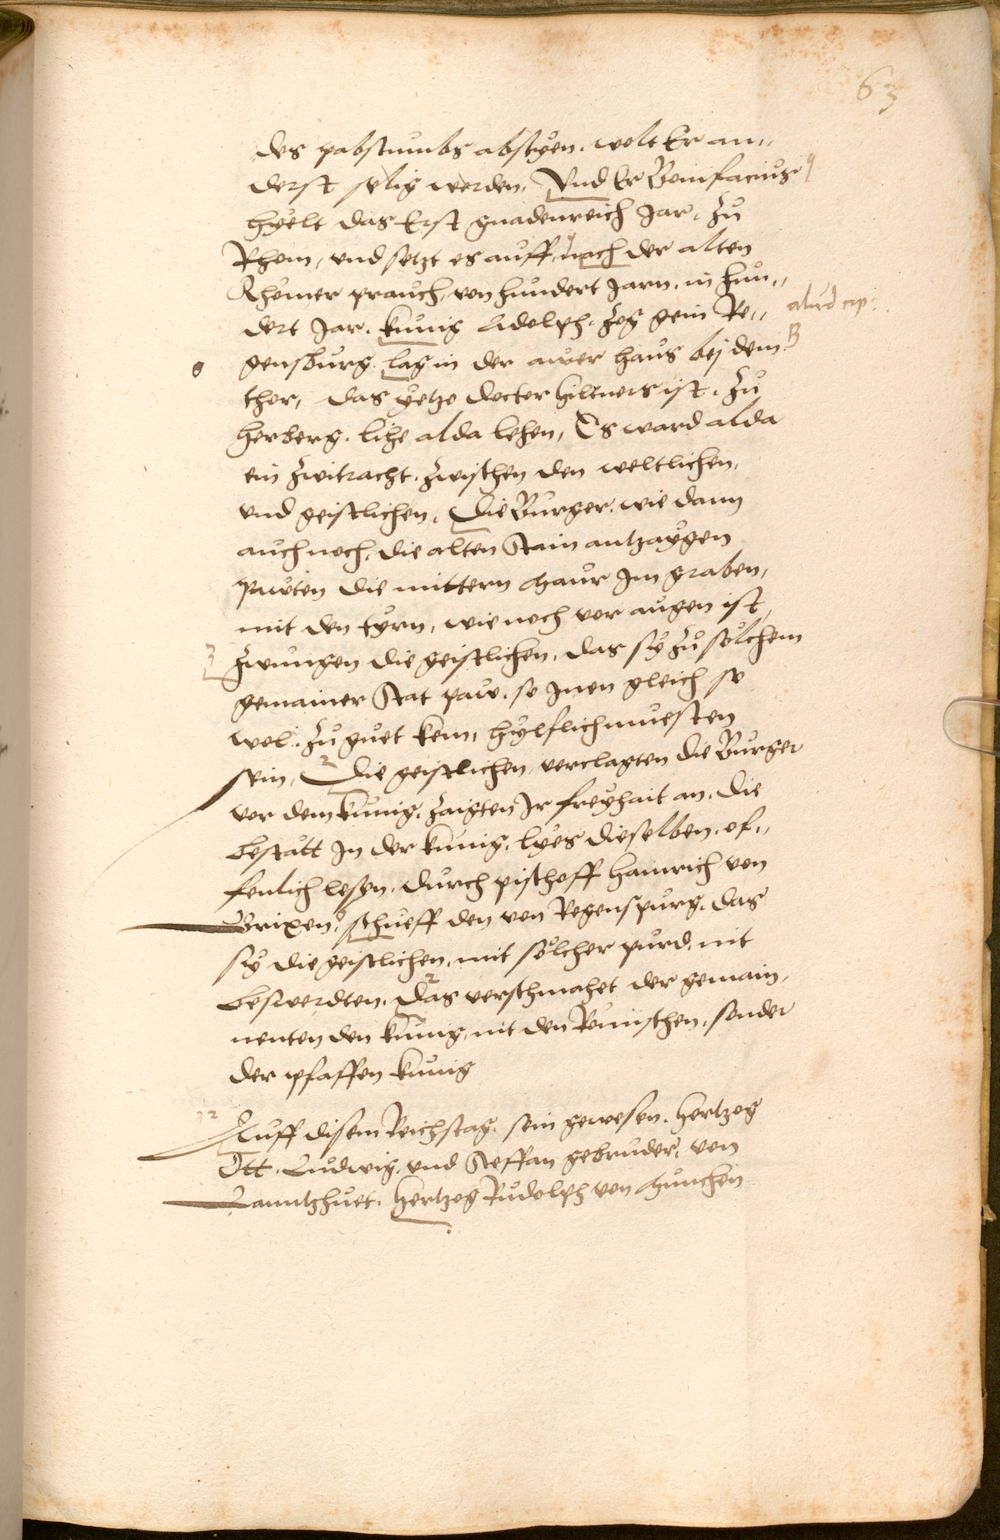 63
des pabstumbs abstyen. wolt Er an„
derst selig werden, Vnd Er Bonifacius
hyelt das Erst gnadenreich Jar, zů
Rhom, vnd setzt es auff, nach der alten
Rhömer prauch, von hundert Jarn, in hun„
dert Jar. kunig Adolph. zog gein Re„
gensburg. lag in der awer haus bej dem
thor, das yetze doctor hiltners ist. zů
herberg. lihe alda lehen, Es ward alda
ein zwitracht. zwischen den weltlichen,
vnd geistlichen. Die Burger, wie dann
auch noch, die alten Stain antzaygen
pawten die mittern Maur Im graben,
mit den tyrn, wie noch vor augen ist
zwungen die geistlichen, das sy zů solchem
gemainer Stat paw. so Inen gleich so
wol. zů guet kem, hylflich muesten
sein, Die geistlichen verclagten die Burger
vor dem kunig, zaigten Ir freyhait an. die
bestatt In der kunig, lyes dieselben, of„
fenlich lesen. durch pischoff hainrich von
Brixen, schueff den von Regenspurg, das
sy die geistlichen, mit solcher purd, nit
beswerdten. Das verschmahet der gemain,
nenten den kunig, nit den Römischen, sonder
der pfaffen kunig
Auff disem Reichstag. sein gewesen. hertzog
Ott. Ludwig, vnd Steffan gebruder, von
Lanntzhuet. hertzog Rudolph von München